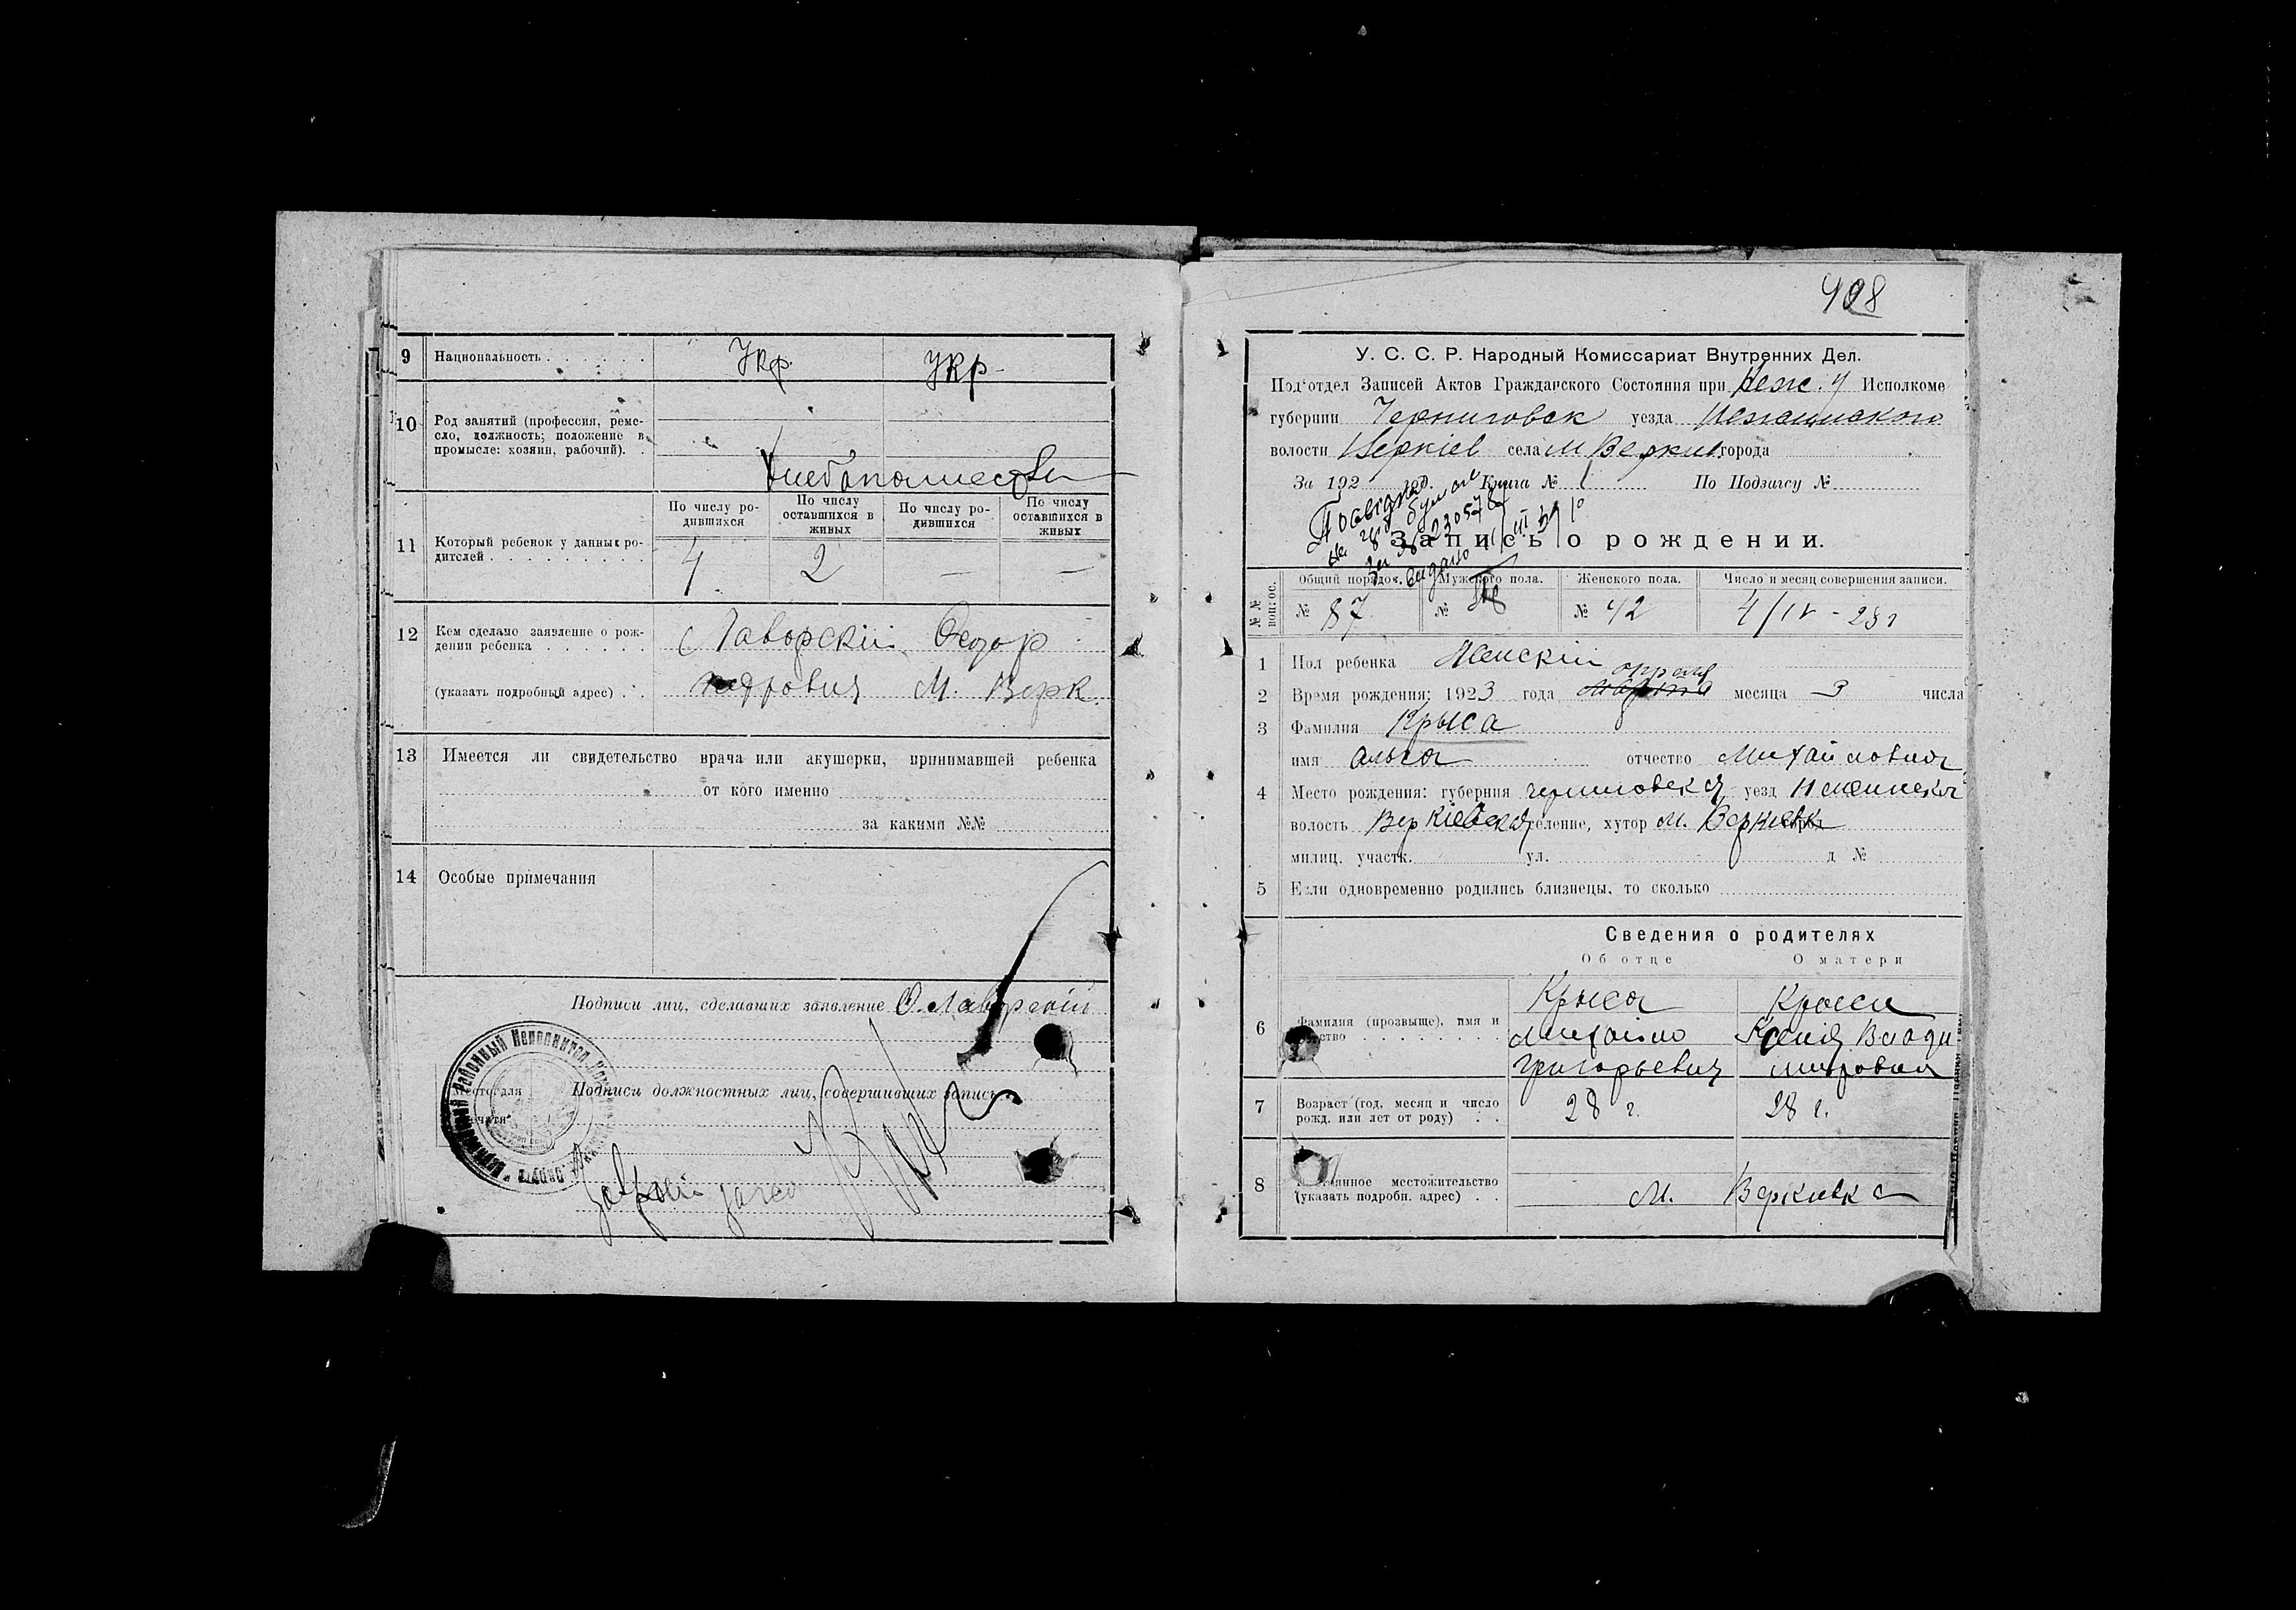 9 Национальность . . . . . . Укр. Укр
10 Род занятий (профессия, реме-
сло, должность; положение в
промысле: хозяин, рабочий). .
хлебопашест
По числу ро-
дившихся
По числу
оставшихся в
живых
По числу ро-
дившихся
По числу
оставшихся в
живых
11 Который ребенок у данных ро-
дителей . . . . . . . . .
4 2 — —
12 Кем сделано заявление о рож-
дении ребенка . . . . . .
(указать подробный адрес) . .
Лаворскій Федор
М. Верк.
13 Имеется ли свидетельство врача или акушерки, принимавшей ребенка
от кого именно
за какими №№
14 Особые примечания
Подписи лиц, сделавших заявление Ф. Лаворскій
Место для
Подписи должностных лиц, совершивших запись
408
У. С. С. Р. Народный Комиссариат Внутренних Дел.
Под'отдел Записей Актов Гражданского Состояния при Исполкоме
губернии Черниговск уезда
волости Веркіев села М Веркив города
За 192 год. Книга № 1 По Подзагсу №
Запись о рождении.
№ №
Общий порядок. Мужского пола. Женского пола. Число и месяц совершения записи.
№ 87 № № 42 4/IV - 23 г
1 Пол ребенка Женскій
2 Время рождения: 1923 года апреля марта месяца 3 числа
3 Фамилия Крыса
имя Ольга отчество Михайловна
4 Место рождения: губерния черниговская уезд Неженская
волость Веркіевская селение, хутор М. Веркіевка
милиц. участк. ул. д №
5 Если одновременно родились близнецы, то сколько
Сведения о родителях
Об отце О матери
6 Фамилия (прозвыще), имя и
Крыса
Михайло
Григорьевич
Крыса
Ксенія Влади
мировна
7 Возраст (год, месяц и число
рожд. или лет от роду) . .
28 г. 28 г.
8 местожительство
(указать подробн. адрес) . .
М. Веркиевка